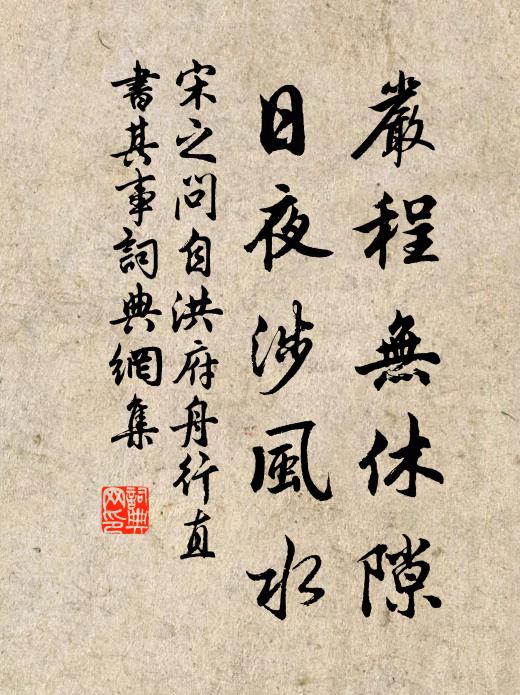 嚴程無休隙
日夜涉風水
宋之問自洪府舟行直
書其事詞典網集
詞典
网印